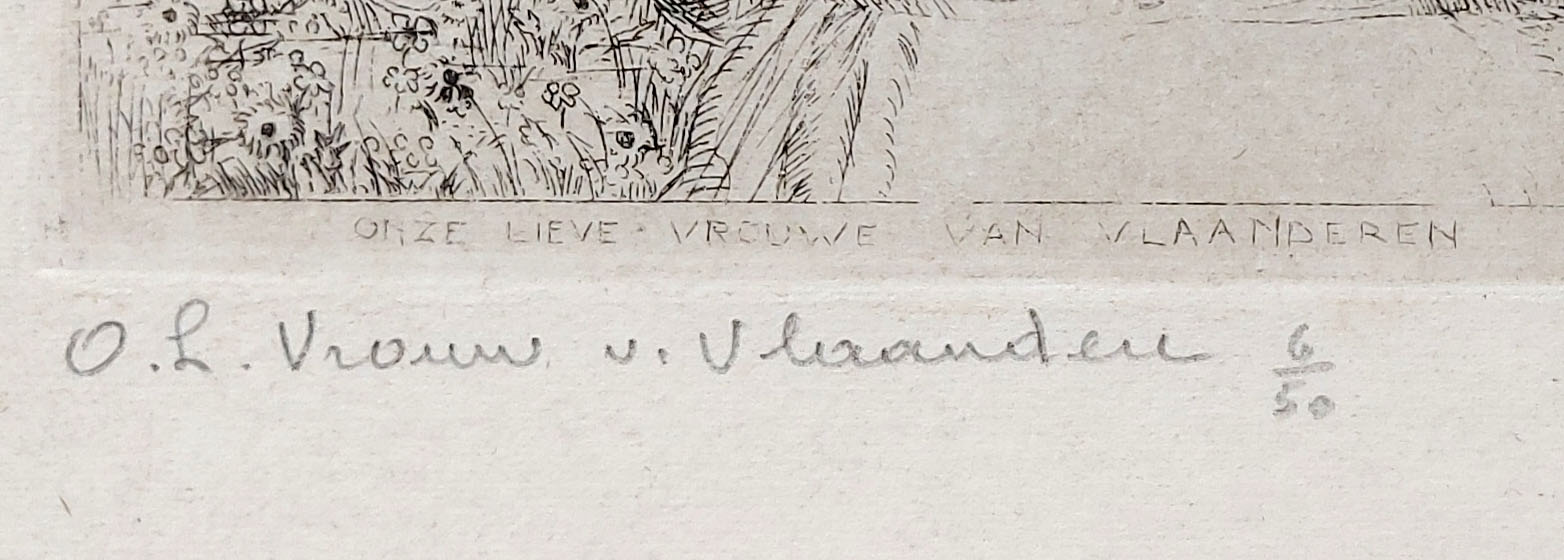 ONZE LIEVE VROUWE VAN VLAANDEREN
O. L. Vrouw v. Vlaanderen 6/50